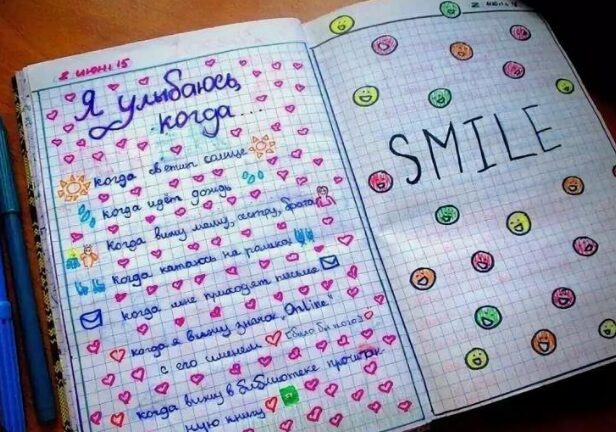 2 июня 15
Я улыбаюсь,
когда...
когда светит солнце
когда идёт дождь
когда вижу маму, сестру, брата
когда катаюсь на роликах
когда мне приходят письма
когда я вижу значок "Online"
с его именем
когда вижу в библиотеке прочитан-
ную книгу
SMILE